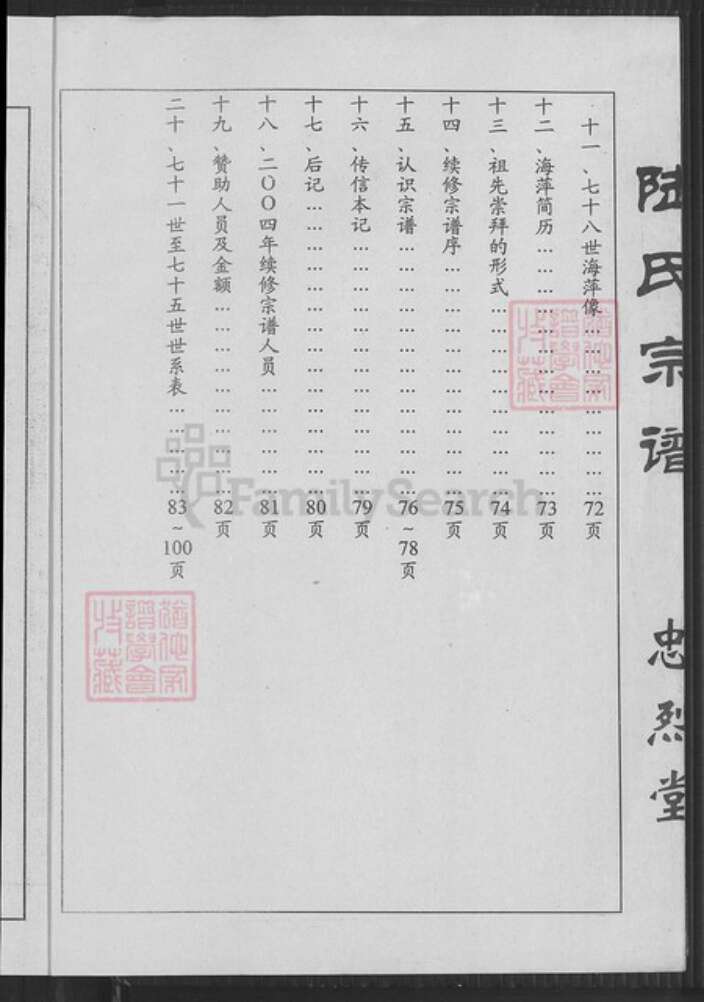 陆氏宗谱 忠烈堂
十一、七十八世海萍像……………………72页
十二、海萍简历……………………73页
十三、祖先崇拜的形式……………………74页
十四、续修宗谱序……………………75页
十五、认识宗谱……………………76~78页
十六、传信本记……………………79页
十七、后记……………………80页
十八、二〇〇四年续修宗谱人员……………………81页
十九、赞助人员及金额……………………82页
二十、七十一世至七十五世世系表……………83~100页
FamilySearch